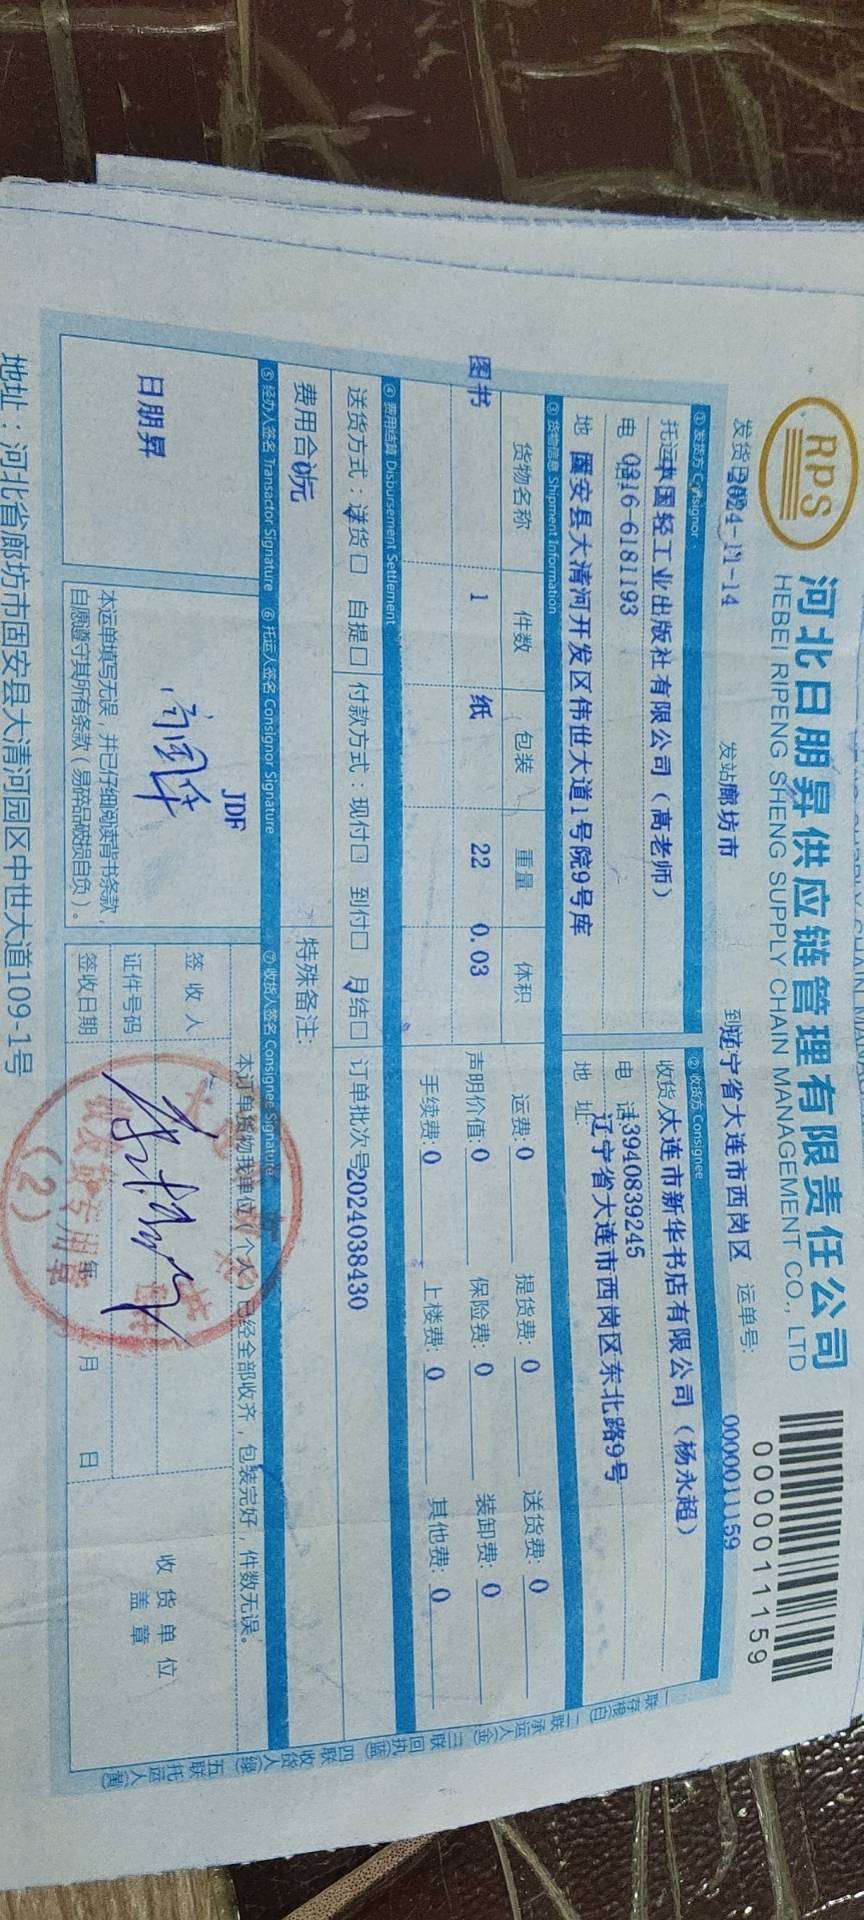 RPS
河北日朋昇供应链管理有限责任公司
HEBEI RIPENG SHENG SUPPLY CHAIN MANAGEMENT CO., LTD
0000011159
发货日期2024-11-14 发站廊坊市 到站辽宁省大连市西岗区 运单号: 0000011159
① 发货方 Consignor
托运人中国轻工业出版社有限公司（高老师）
电 话0316-6181193
地 址固安县大清河开发区伟世大道1号院9号库
② 收货方 Consignee
收货人大连市新华书店有限公司（杨永超）
电 话13940839245
地 址 辽宁省大连市西岗区东北路9号
③ 货物信息 Shipment Information
货物名称 件数 包装 重量 体积
图书 1 纸 22 0.03
运费: 0 提货费: 0 送货费: 0
声明价值: 0 保险费: 0 装卸费: 0
手续费: 0 上楼费: 0 其他费: 0
④ 费用结算 Disbursement Settlement
送货方式：送货☑ 自提□ 付款方式：现付□ 到付□ 月结☑ 订单批次号2024038430
费用合计0元
特殊备注:
⑤ 经办人签名 Transactor Signature ⑥ 托运人签名 Consignor Signature ⑦ 收货人签名 Consignee Signature
日朋昇
JDF
本运单填写无误，并已仔细阅读背书条款，
自愿遵守其所有条款（易碎品破损自负）。
本订单货物我单位（个人）已经全部收齐，包装完好，件数无误。
签 收 人
证件号码
签收日期 年 月 日
收 货 单 位
盖 章
收发货专用章
(2)
一联存根(白) 二联承运人(金) 三联回执(蓝) 四联收货人(绿) 五联托运人(黄)
地址：河北省廊坊市固安县大清河园区中世大道109-1号